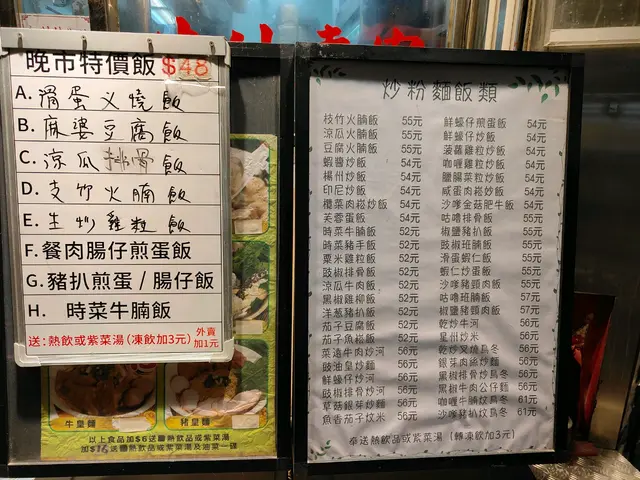 晚市特價飯 $48
A. 滑蛋义燒飯
B. 麻婆豆腐飯
C. 涼瓜排骨飯
D. 支竹火腩飯
E. 生炒雞粒飯
F. 餐肉腸仔煎蛋飯
G. 豬扒煎蛋/腸仔飯
H. 時菜牛腩飯
送:熱飲或紫菜湯(凍飲加3元)
外賣
加1元
牛皇麵
豬皇麵
以上食品加$6送熱飲品或紫菜湯
加$16送熱飲品或紫菜湯及油菜一碟
炒粉麵飯類
枝竹火腩飯 55元
涼瓜火腩飯 55元
豆腐火腩飯 55元
蝦醬炒飯 54元
楊州炒飯 54元
印尼炒飯 54元
欖菜肉崧炒飯 54元
芙蓉蛋飯 54元
時菜牛腩飯 52元
時菜豬手飯 52元
粟米雞粒飯 52元
豉椒排骨飯 52元
涼瓜牛肉飯 52元
黑椒雞柳飯 52元
洋葱豬扒飯 52元
茄子豆腐飯 52元
茄子魚崧飯 52元
菜遠牛肉炒河 56元
豉油皇炒麵 56元
鮮蠔仔炒河 56元
豉椒排骨炒河 56元
草菇銀芽炒麵 56元
魚香茄子炆米 56元
鮮蠔仔煎蛋飯 54元
鮮蠔仔炒飯 54元
菠蘿雞粒炒飯 54元
咖喱雞粒炒飯 54元
臘腸菜粒炒飯 54元
咸蛋肉崧炒飯 54元
沙嗲金菇肥牛飯 54元
咕嚕排骨飯 55元
椒鹽豬扒飯 55元
豉椒班腩飯 55元
滑蛋蝦仁飯 55元
蝦仁炒蛋飯 55元
沙嗲豬頸肉飯 55元
咕嚕班腩飯 57元
椒鹽豬頸肉飯 57元
乾炒牛河 56元
星州炒米 56元
乾炒叉燒烏冬 56元
銀芽肉絲炒麵 56元
黑椒排骨炒烏冬 56元
黑椒牛肉公仔麵 56元
咖喱牛腩炆烏冬 61元
沙嗲豬扒炆烏冬 61元
奉送熱飲品或紫菜湯(轉凍飲加3元)